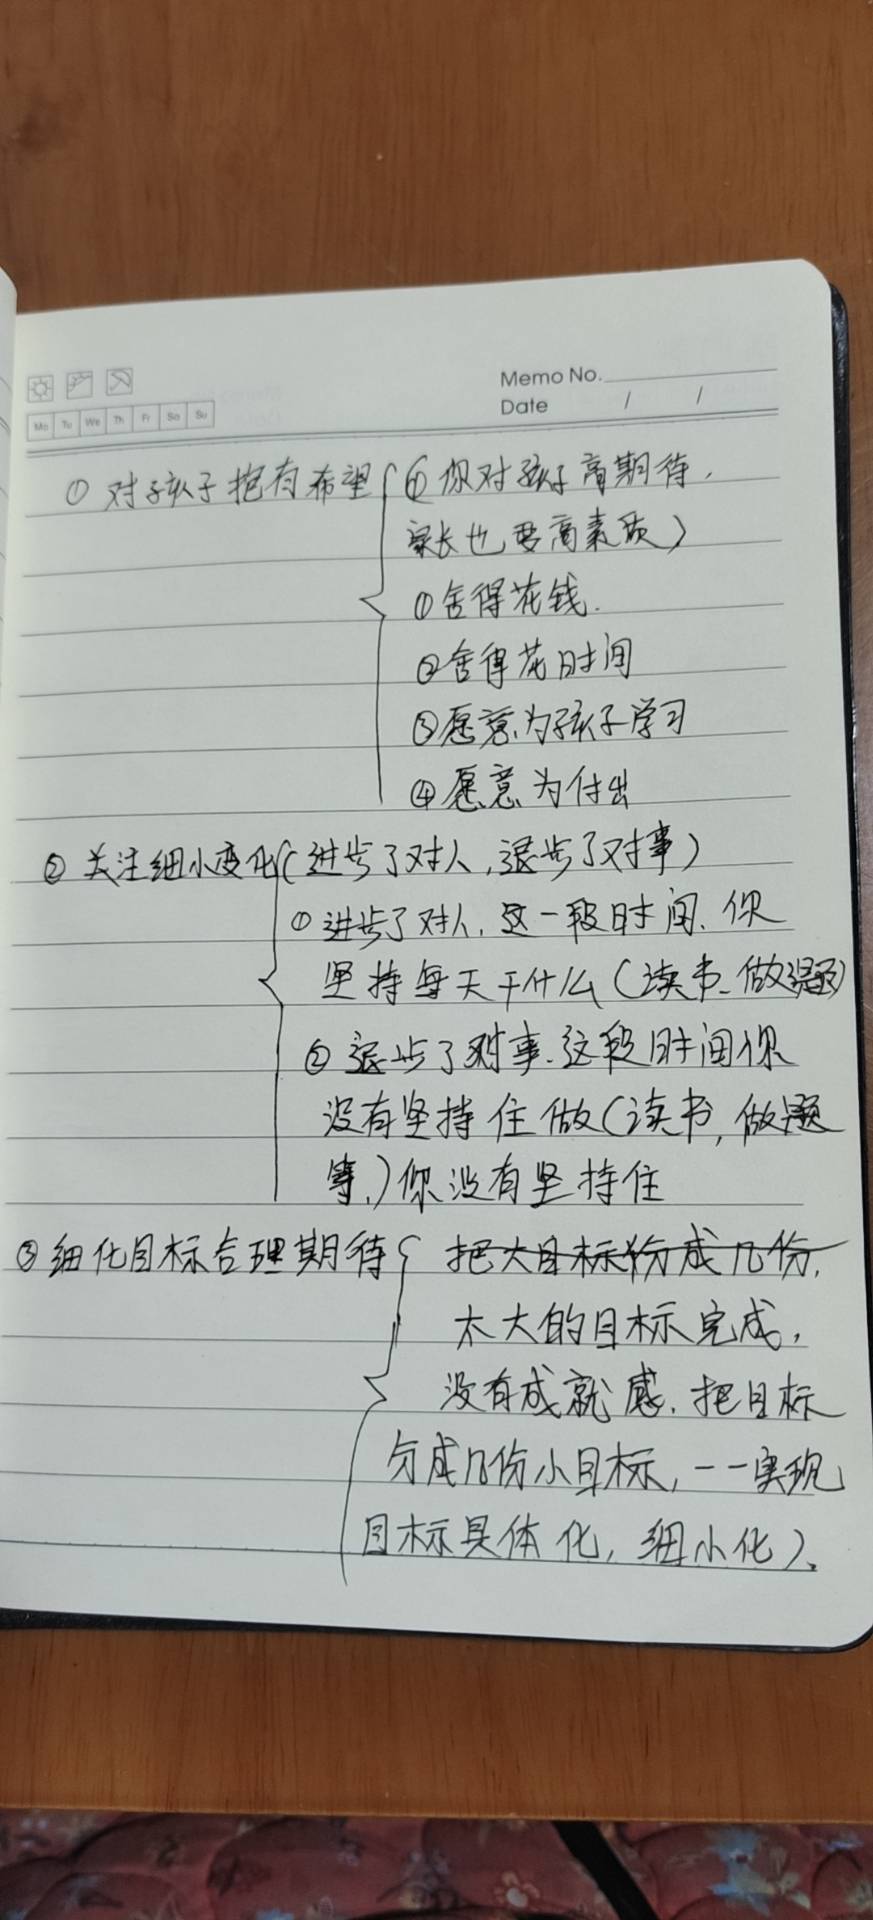 Memo No.
Date / /
Mo Tu We Th Fr Sa Su
① 对孩子抱有希望 ( 你对孩子高期待,
家长也要高素质)
①舍得花钱.
②舍得花时间
③愿意为孩子学习
④愿意为付出
② 关注细小变化(进步了对人,退步了对事)
①进步了对人,这一段时间、你
坚持每天干什么(读书、做题)
②退步了对事、这段时间你
没有坚持住做(读书,做题
等,)你没有坚持住
③细化目标合理期待( 把大目标分成几份,
太大的目标完成,
没有成就感.把目标
分成几份小目标,一一实现
目标具体化,细小化)、